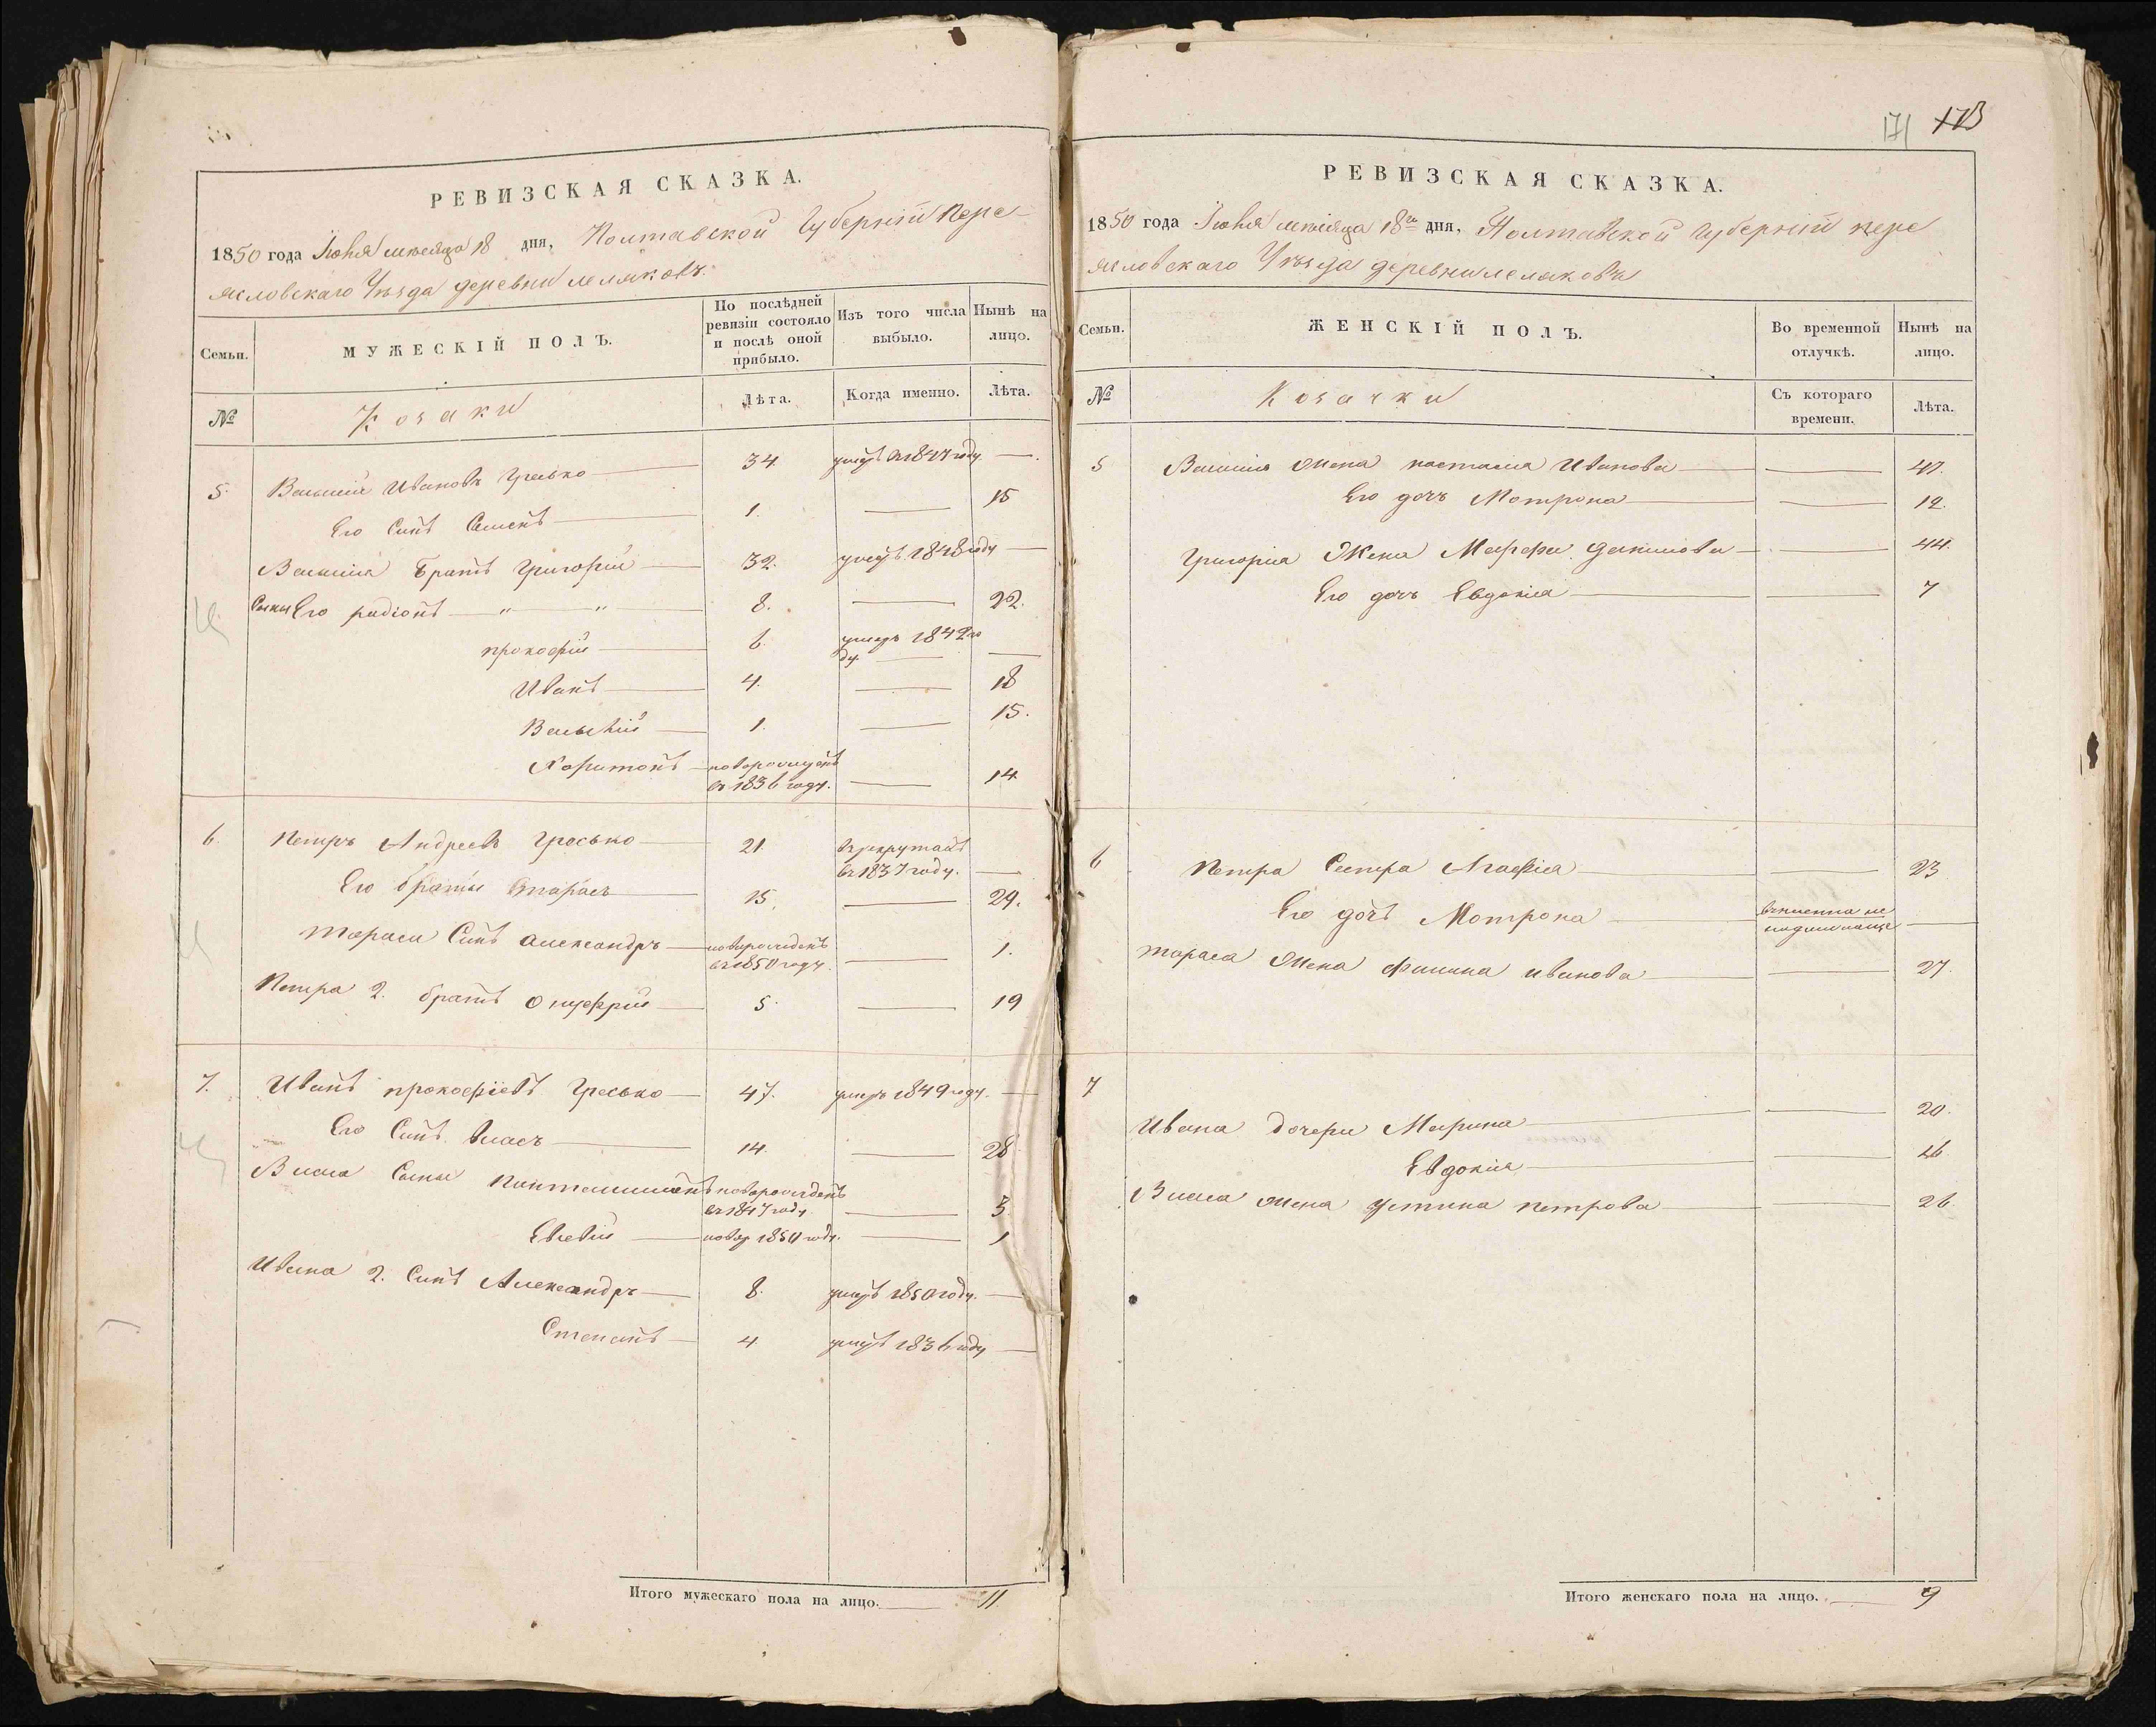 РЕВИЗСКАЯ СКАЗКА.
1850 года Іюня месяца 18 дня, Полтавской Губерніи Пере-
ясловскаго Уѣзда деревни Леляковъ.
Семьи.
МУЖЕСКІЙ ПОЛЪ.
По послѣдней ревизіи состояло и послѣ оной прибыло.
Изъ того числа выбыло.
Нынѣ на лицо.
№
Козаки
Лѣта.
Когда именно.
Лѣта.
5. Василій Ивановъ Гресько 34. 1847 году
Его Синъ Семенъ 1. 15
Василія Братъ Григорій 32. 1848 году
Сыны Его радіонъ 8. 22.
прокофій 6. умеръ 1842 го
ду
Иванъ 4. 18
Василій 1. 15.
Харитонъ новорожденъ
въ 1836 году. 14
6. Петръ Андреевъ Гресько 21. в рекруты
въ 1837 году.
Его братъ Тарасъ 15. 29.
Тараса Синъ Александръ новорожденъ
въ 1850 году. 1.
Петра 2. братъ Онуфрій 5. 19
7. Иванъ прокофіевъ Гресько 47. умеръ 1849 году.
Его Синъ Власъ 14. 28
Власа Сыны Пантелимонъ новорожденъ
въ 1847 году 3.
Евсевій новор 1850 году. 1
Ивана 2. Синъ Александръ 8. умеръ 1850 году.
Степанъ 4 умеръ 1836 году
Итого мужескаго пола на лицо. 11.
171 173
РЕВИЗСКАЯ СКАЗКА.
1850 года Іюня месяца 18го дня, Полтавской Губерніи пере
ясловскаго Уѣзда деревни Леляковъ
Семьи.
ЖЕНСКІЙ ПОЛЪ.
Во временной отлучкѣ.
Нынѣ на лицо.
№
Козачки
Съ котораго времени.
Лѣта.
5 Василія Жена настасія Иванова 47.
Его дочь Мотрона 12.
Григорія Жена Марфа 44.
Его дочь Евдокія 7
6 Петра Сестра Агафія 23
Его дочъ Мотрона
Тараса Жена Иванова 27.
7
Ивана дочери Марина 20.
Евдокія 16
Власа жена Устина петрова 26
Итого женскаго пола на лицо. 9